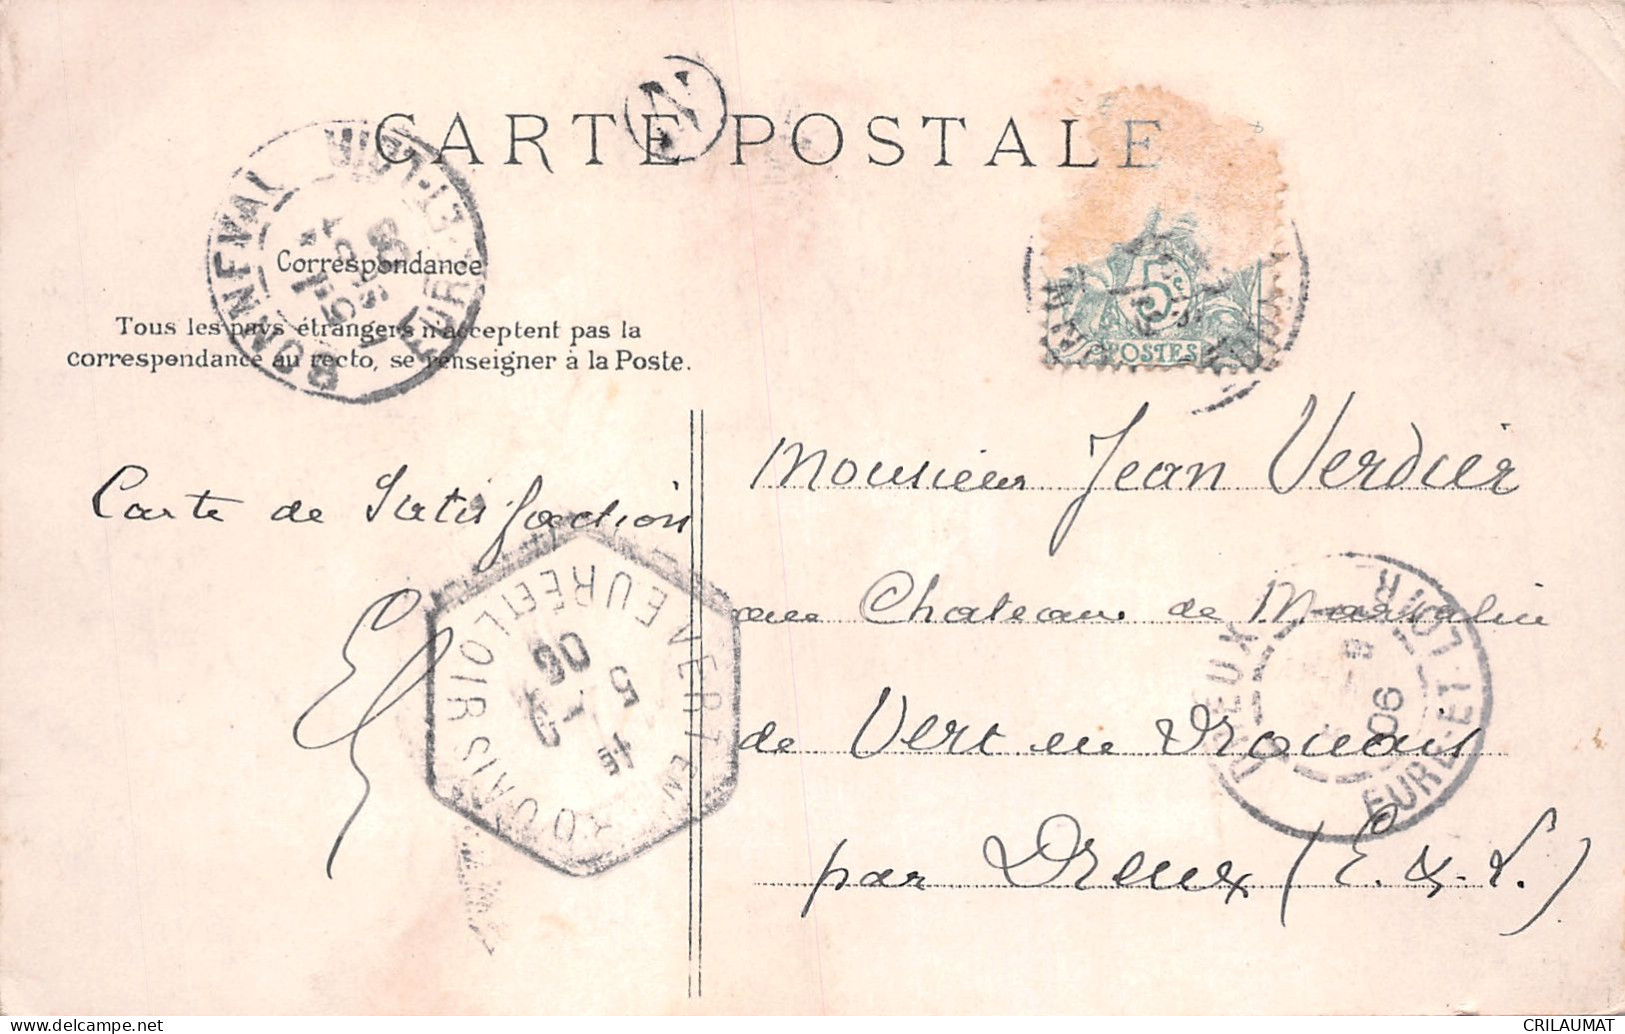 CARTE POSTALE
Correspondance
Tous les pays étrangers n'acceptent pas la
correspondance au recto, se renseigner à la Poste.
BONNEVAL
EURE-ET-LOIR
5c
POSTES
Carte de Satisfaction
Monsieur Jean Verdier
au Chateau de Marsalin
de Vert en Drouais
par Dreux (E. & L.)
VERT EN DROUAIS
EURE ET LOIR
5
06
DREUX
EURE-ET-LOIR
06
CRILAUMAT